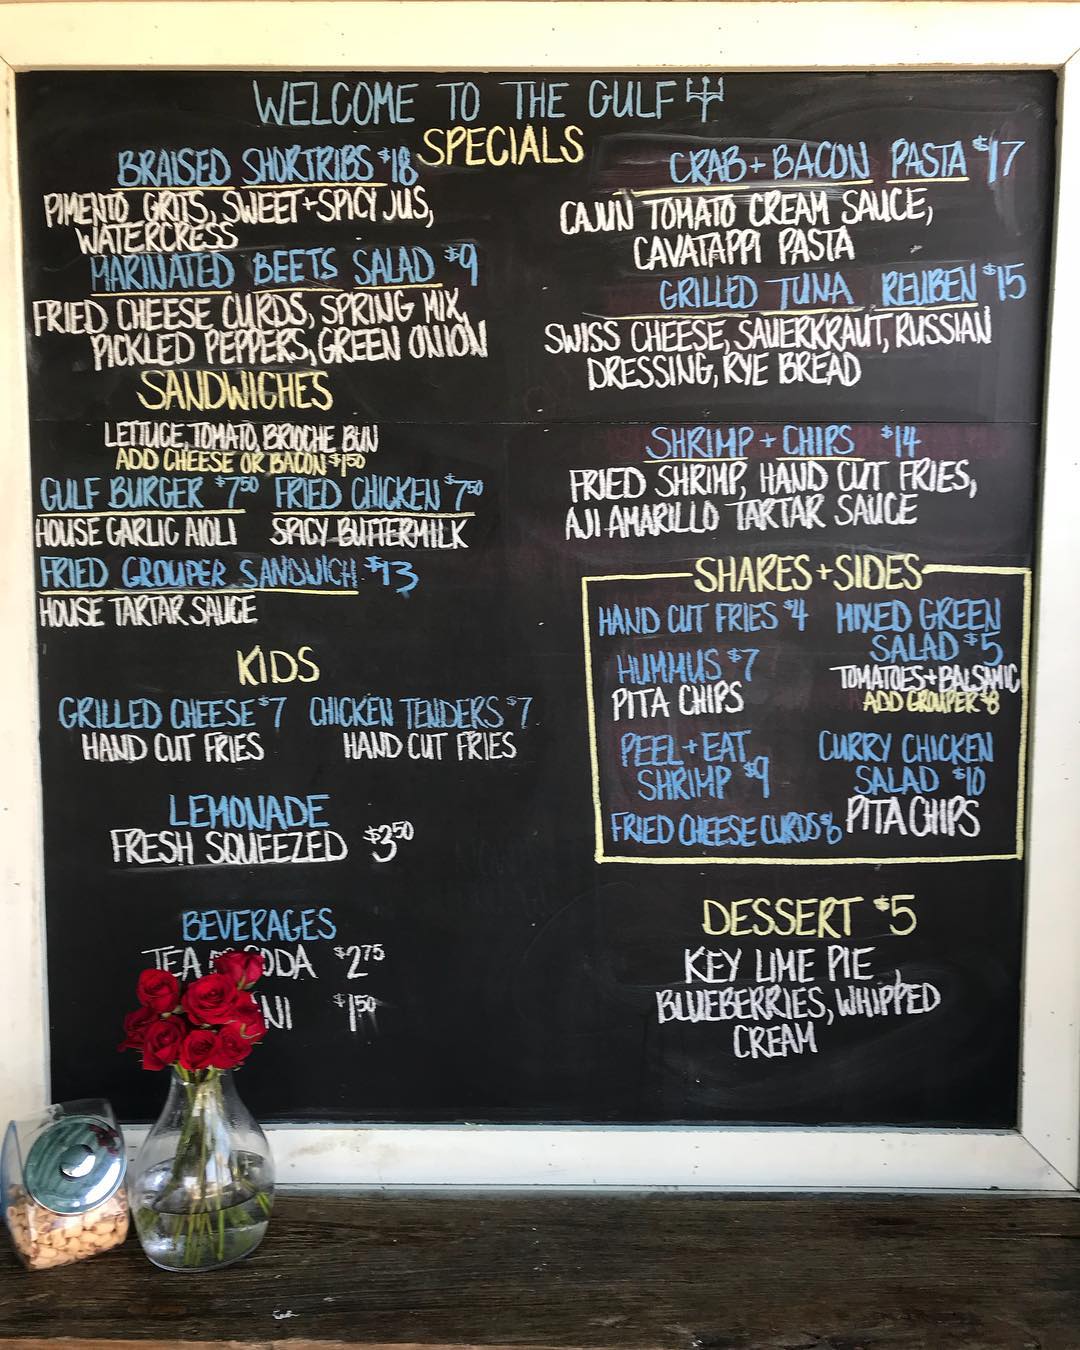 WELCOME TO THE GULF
SPECIALS
BRAISED SHORTRIBS $18
PIMENTO GRITS, SWEET+SPICY JUS,
WATERCRESS
MARINATED BEETS SALAD $9
FRIED CHEESE CURDS, SPRING MIX,
PICKLED PEPPERS, GREEN ONION
CRAB + BACON PASTA $17
CAJUN TOMATO CREAM SAUCE,
CAVATAPPI PASTA
GRILLED TUNA REUBEN $15
SWISS CHEESE, SAUERKRAUT, RUSSIAN
DRESSING, RYE BREAD
SANDWICHES
LETTUCE, TOMATO, BRIOCHE BUN
ADD CHEESE OR BACON $1.50
GULF BURGER $7.50 FRIED CHICKEN $7.50
HOUSE GARLIC AIOLI SPICY BUTTERMILK
FRIED GROUPER SANDWICH $13
HOUSE TARTAR SAUCE
SHRIMP + CHIPS $14
FRIED SHRIMP, HAND CUT FRIES,
AJI AMARILLO TARTAR SAUCE
KIDS
GRILLED CHEESE $7 CHICKEN TENDERS $7
HAND CUT FRIES HAND CUT FRIES
LEMONADE
FRESH SQUEEZED $3.50
BEVERAGES
TEA SODA $2.75
$1.50
SHARES + SIDES
HAND CUT FRIES $4
HUMMUS $7
PITA CHIPS
PEEL + EAT
SHRIMP $9
FRIED CHEESE CURDS $6
MIXED GREEN
SALAD $5
TOMATOES + BALSAMIC
ADD GROUPER $8
CURRY CHICKEN
SALAD $10
PITA CHIPS
DESSERT $5
KEY LIME PIE,
BLUEBERRIES, WHIPPED
CREAM